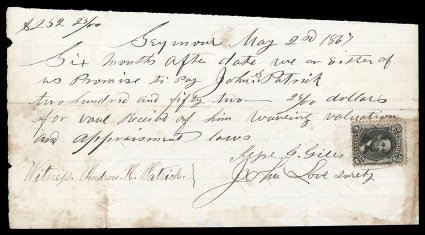 $252 23/00
Seymour May 2nd 1867
Six months after date we or Either of
us Promise to Pay John S. Patrick
two hundred and fifty two — 23/00 dollars
for value Receibd of him waveing valuation
and appraisment laws
G. Gills
John Love surety
Witness Andrew K. Patrick.